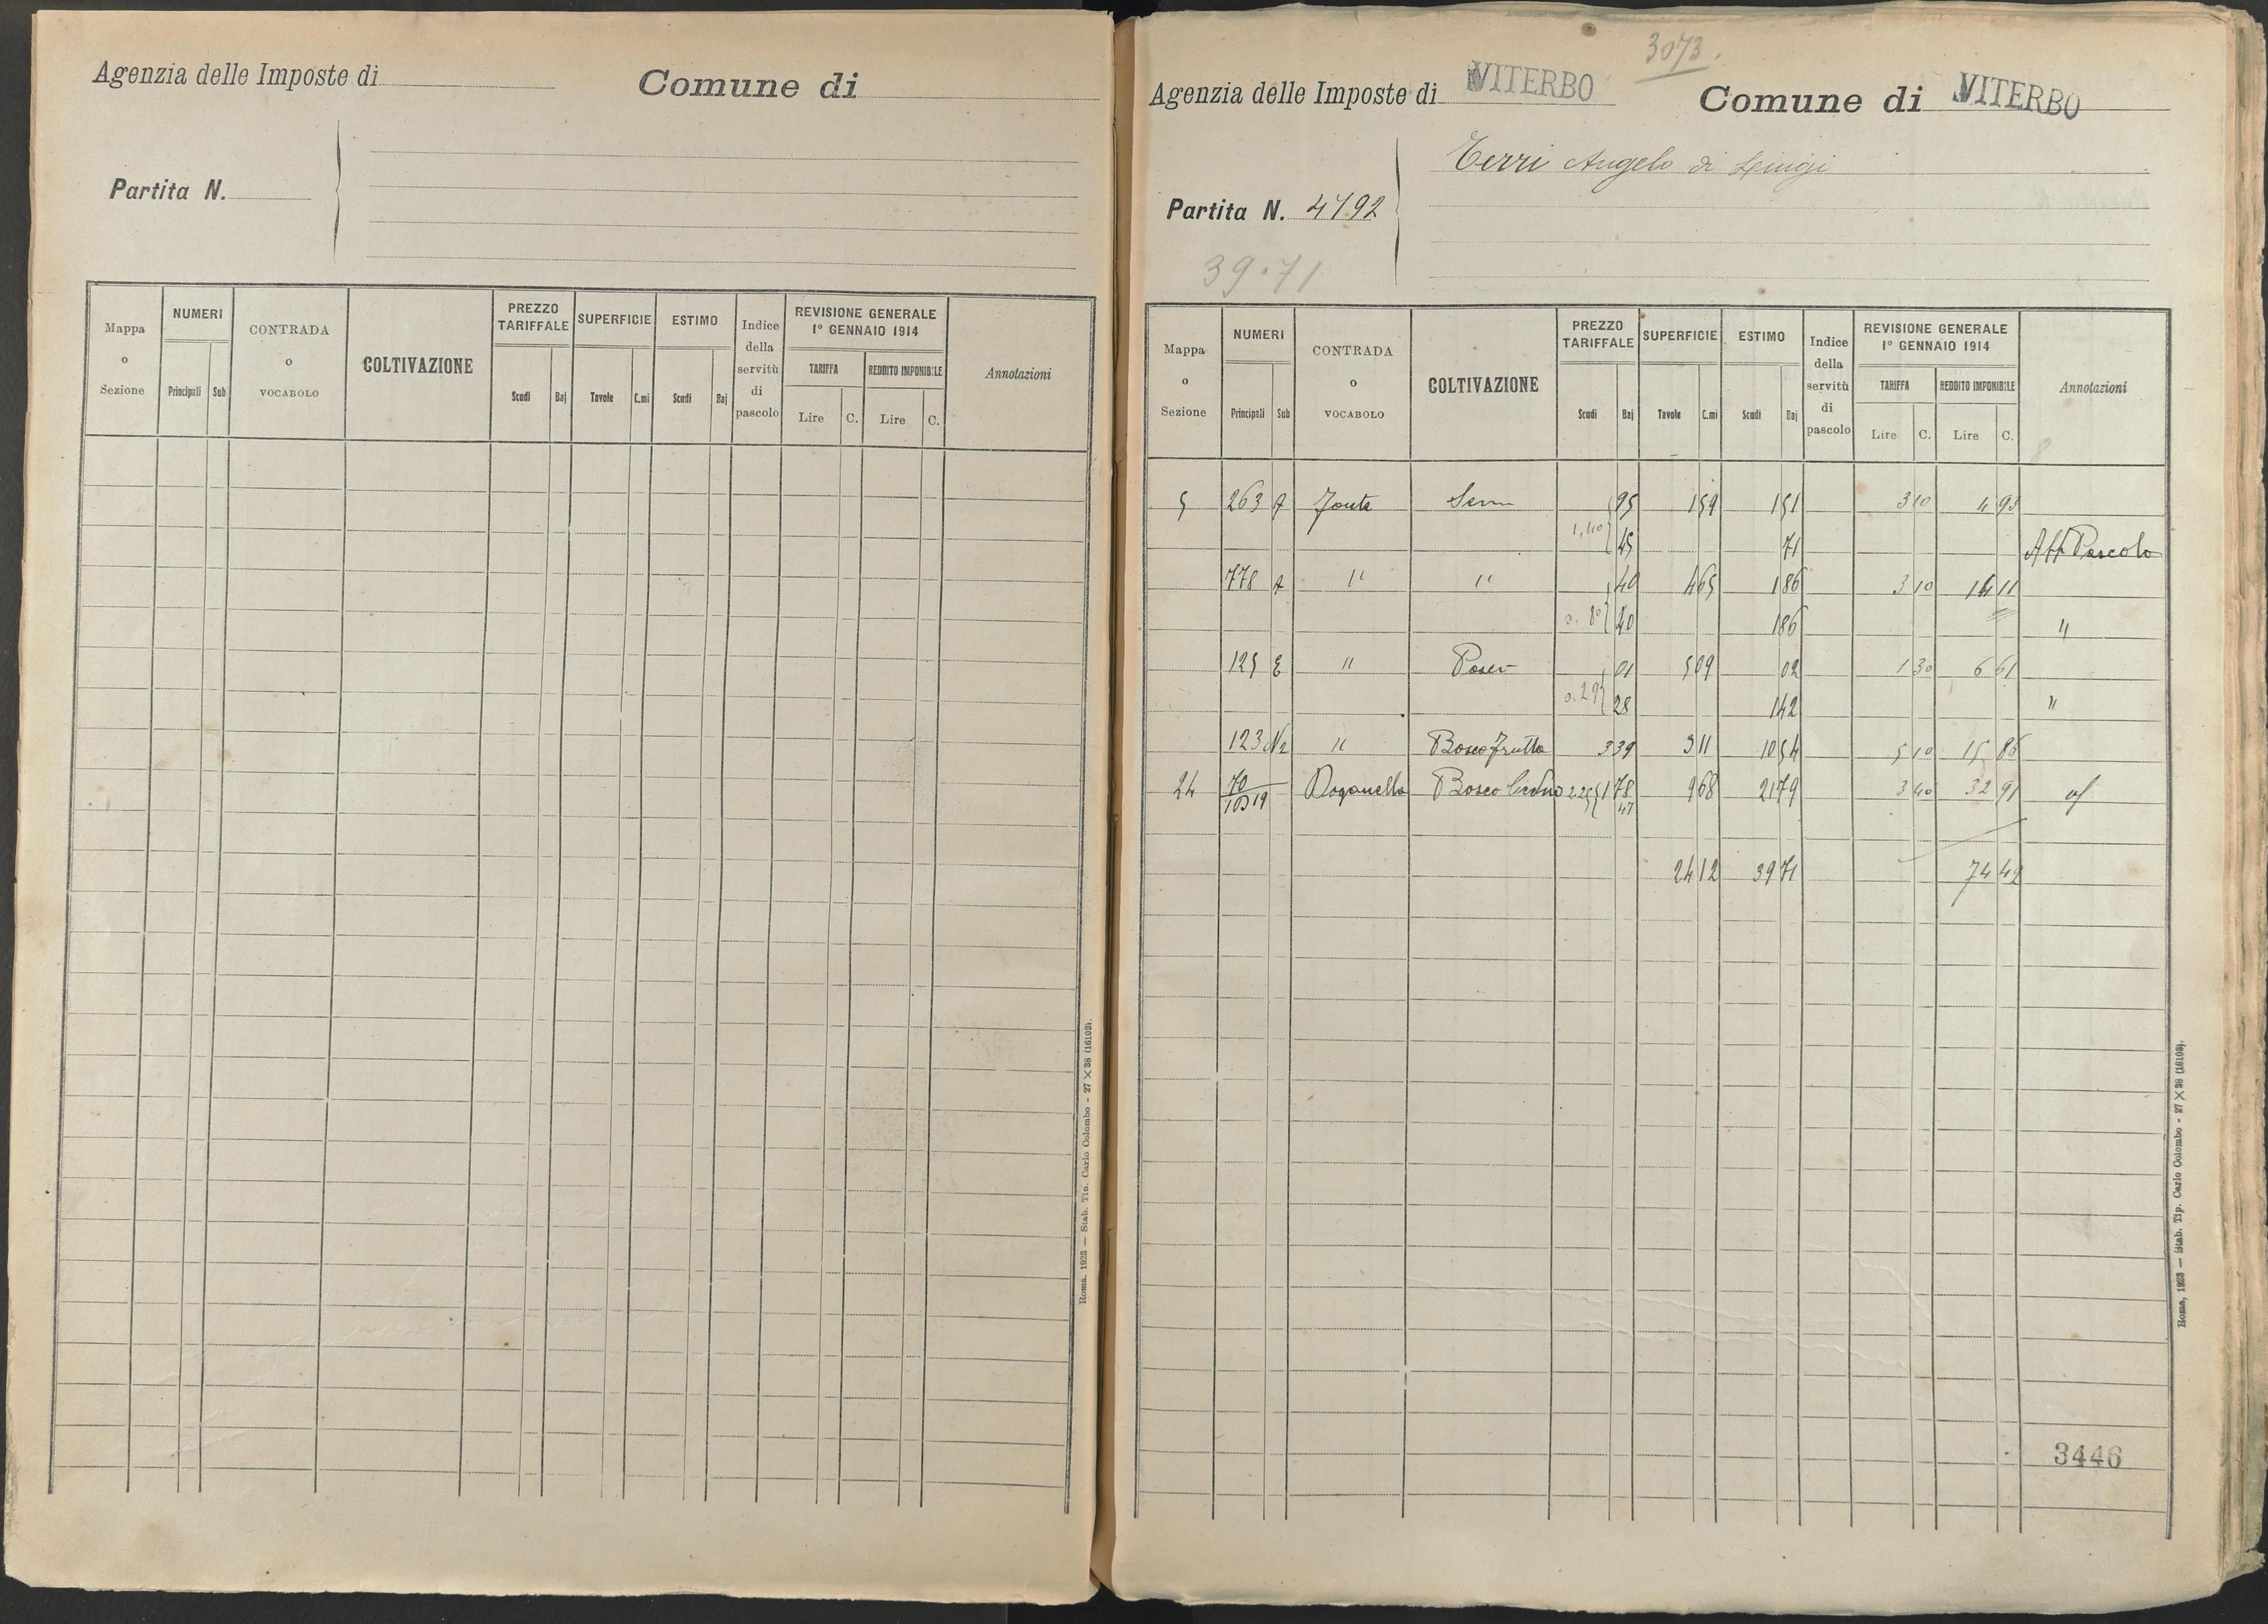 Agenzia delle Imposte di
Comune di
Partita N.
Mappa o Sezione
NUMERI
Principali Sub
CONTRADA o VOCABOLO
COLTIVAZIONE
PREZZO TARIFFALE
Scudi Baj
SUPERFICIE
Tavole C.mi
ESTIMO
Scudi Baj
Indice della servitù di pascolo
REVISIONE GENERALE
1° GENNAIO 1914
TARIFFA REDDITO IMPONIBILE
Lire C. Lire C.
Annotazioni
Roma, 1923 — Stab. Tip. Carlo Colombo - 27 × 38 (16103).
3073.
Agenzia delle Imposte di VITERBO
Comune di VITERBO
Terri Angelo di Luigi
Partita N. 4792
39.71
Mappa o Sezione
NUMERI
Principali Sub
CONTRADA o VOCABOLO
COLTIVAZIONE
PREZZO TARIFFALE
Scudi Baj
SUPERFICIE
Tavole C.mi
ESTIMO
Scudi Baj
Indice della servitù di pascolo
REVISIONE GENERALE
1° GENNAIO 1914
TARIFFA REDDITO IMPONIBILE
Lire C. Lire C.
Annotazioni
5 263 A Sem 95 1 59 1 51 3 10 4 93
1,40 45 71 Aff Pascolo
778 A " " 40 4 65 1 86 3 10 14 11
0.80 40 1 86 "
125 E " Pasc 01 5 09 02 1 30 6 61
0.29 28 1 42 "
123 " Bosco frutto 3 39 3 11 10 54 5 10 15 86
24 70/1039 Doganella Bosco Ceduo 2.25 1 78 9 68 21 79 3 40 32 91
47
24 12 39 71 74 42
3446
Roma, 1923 — Stab. Tip. Carlo Colombo - 27 × 38 (16103).